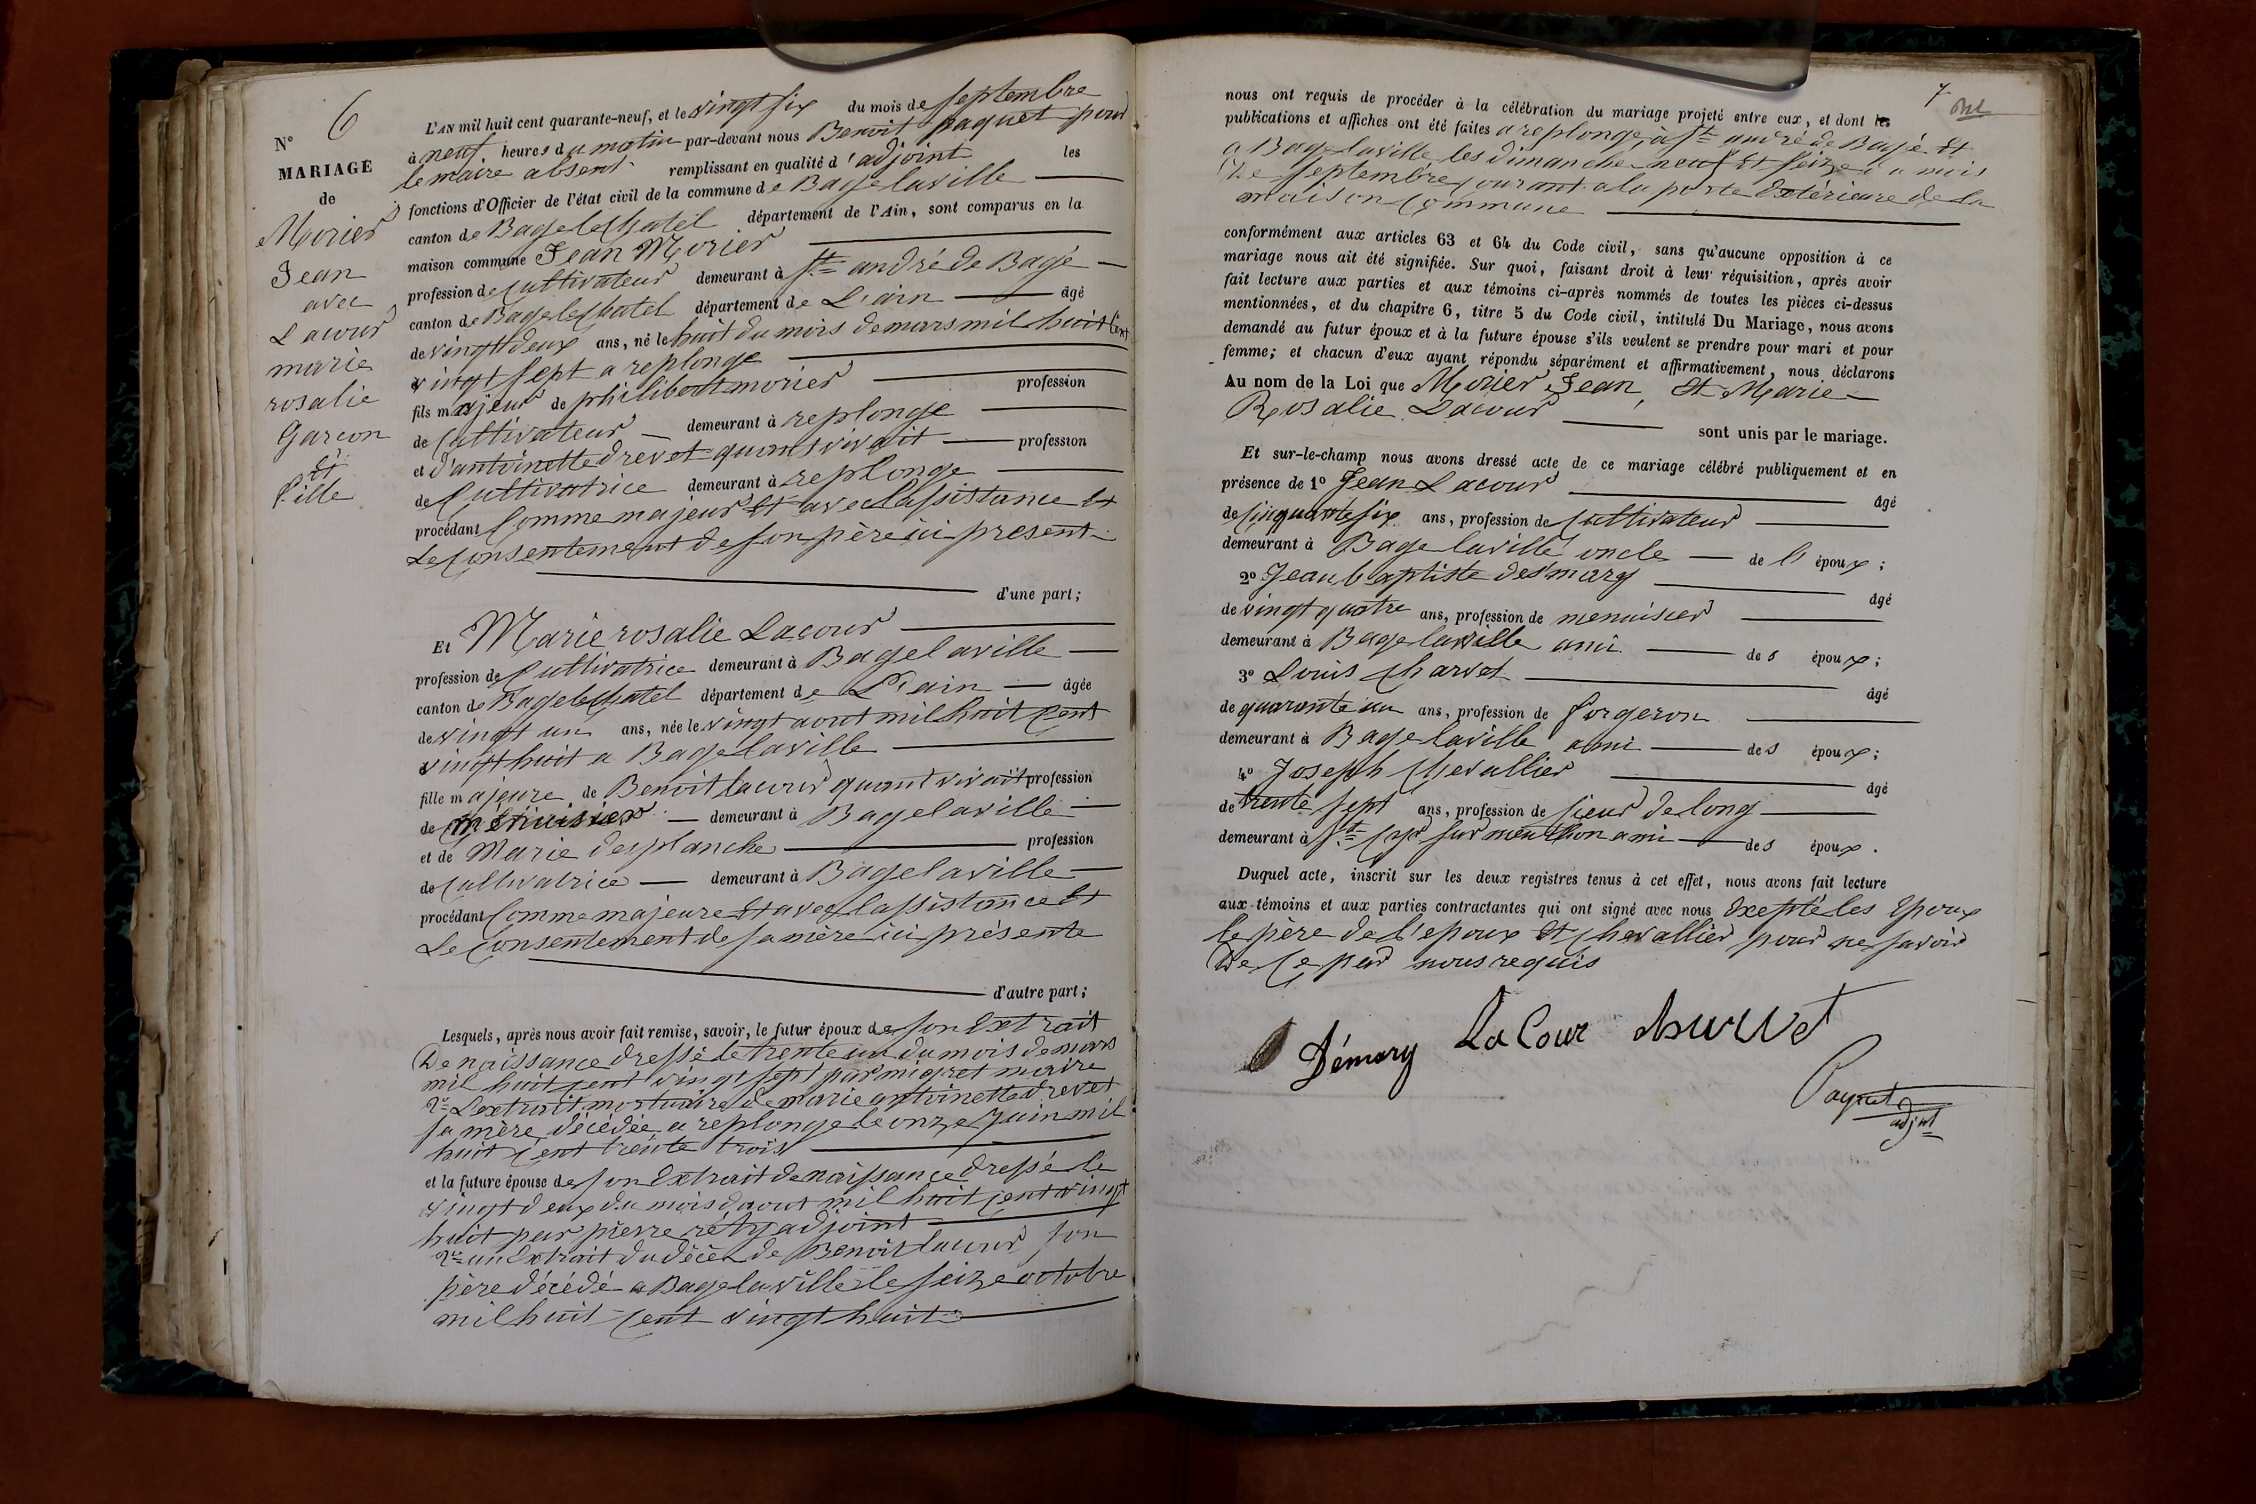 N° 6
MARIAGE
de
Morier
Jean
avec
Lacour
marie
rosalie
Garcon
et
fille
L'AN mil huit cent quarante-neuf, et le vingt six du mois de septembre
à neuf heures du matin par-devant nous Benoit paquet pour
le maire absent remplissant en qualité d'adjoint les
fonctions d'Officier de l'état civil de la commune de Bage laville
canton de Bage le Chatel département de l'Ain, sont comparus en la
maison commune Jean Morier
profession de Cultivateur demeurant à St andré de Bagé
canton de Bage le Chatel département de L'ain âgé
de vingt deux ans, né le huit du mois de mars mil huit Cent
vingt sept a replonge
fils majeur de philibert morier profession
de Cultivateur demeurant à replonge
et d'antoinette drevet quant vivait profession
de Cultivatrice demeurant à replonge
procédant Comme majeur Et avec lassistance Et
Le Consentement de son père ici present
d'une part;
Et Marie rosalie Lacour
profession de Cultivatrice demeurant à Bage laville
canton de Bage le Chatel département de L'ain âgée
de vingt un ans, née le vingt aout mil huit Cent
vingt huit a Bage laville
fille majeure de Benoit lacour quant vivait profession
de menuisier demeurant à Bage laville
et de Marie desplanche profession
de Cultivatrice demeurant à Bage laville
procédant Comme majeure Et avec lassistance Et
Le Consentement de sa mère ici présente
d'autre part;
Lesquels, après nous avoir fait remise, savoir, le futur époux de son Extrait
De naissance dressé le trente un du mois de mars
mil huit cent vingt sept par migret maire
2° L'extrait mortuaire de marie antoinette drevet
sa mère décédée a replonge le onze Juin mil
huit Cent trente trois
et la future épouse de son Extrait de naissance dressé le
vingt deux du mois daout mil huit cent vingt
huit par pierre réty adjoint
2° un Extrait du décès de Benoit lacour son
père décédé a Bage laville le seize octobre
mil huit Cent vingt huit
7
nous ont requis de procéder à la célébration du mariage projeté entre eux, et dont les
publications et affiches ont été faites a replonge, à St andré de Bagé Et
a Bage laville les dimanche neuf Et seize du mois
De septembre courant a la porte Extérieure de la
maison Commune
conformément aux articles 63 et 64 du Code civil, sans qu'aucune opposition à ce
mariage nous ait été signifiée. Sur quoi, faisant droit à leur réquisition, après avoir
fait lecture aux parties et aux témoins ci-après nommés de toutes les pièces ci-dessus
mentionnées, et du chapitre 6, titre 5 du Code civil, intitulé Du Mariage, nous avons
demandé au futur époux et à la future épouse s'ils veulent se prendre pour mari et pour
femme; et chacun d'eux ayant répondu séparément et affirmativement, nous déclarons
Au nom de la Loi que Morier Jean, Et Marie
Rosalie Lacour sont unis par le mariage.
Et sur-le-champ nous avons dressé acte de ce mariage célébré publiquement et en
présence de 1° Jean Lacour âgé
de Cinquante six ans, profession de Cultivateur
demeurant à Bage laville oncle de l' époux;
2° Jean baptiste desmary âgé
de vingt quatre ans, profession de menuisier
demeurant à Bage laville ami des époux;
3° Louis Charvet âgé
de quarante un ans, profession de forgeron
demeurant à Bage laville ami des époux;
4° Joseph Chevallier âgé
de trente sept ans, profession de sieur de long
demeurant à St Cyr sur menthon ami des époux.
Duquel acte, inscrit sur les deux registres tenus à cet effet, nous avons fait lecture
aux témoins et aux parties contractantes qui ont signé avec nous Excepté les Epoux
le père de l'epoux Et Chevallier pour ne savoir
De Ce par nous requis
Démary LaCour charvet
Paquet
adjt